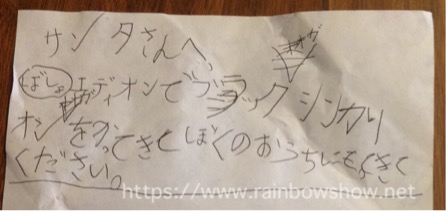 サンタさんへ
ばしょ エディオンでブラックシンカリ
オンをかってきてぼくのおうちにもってきて
ください。
https://www.rainbowshow.net